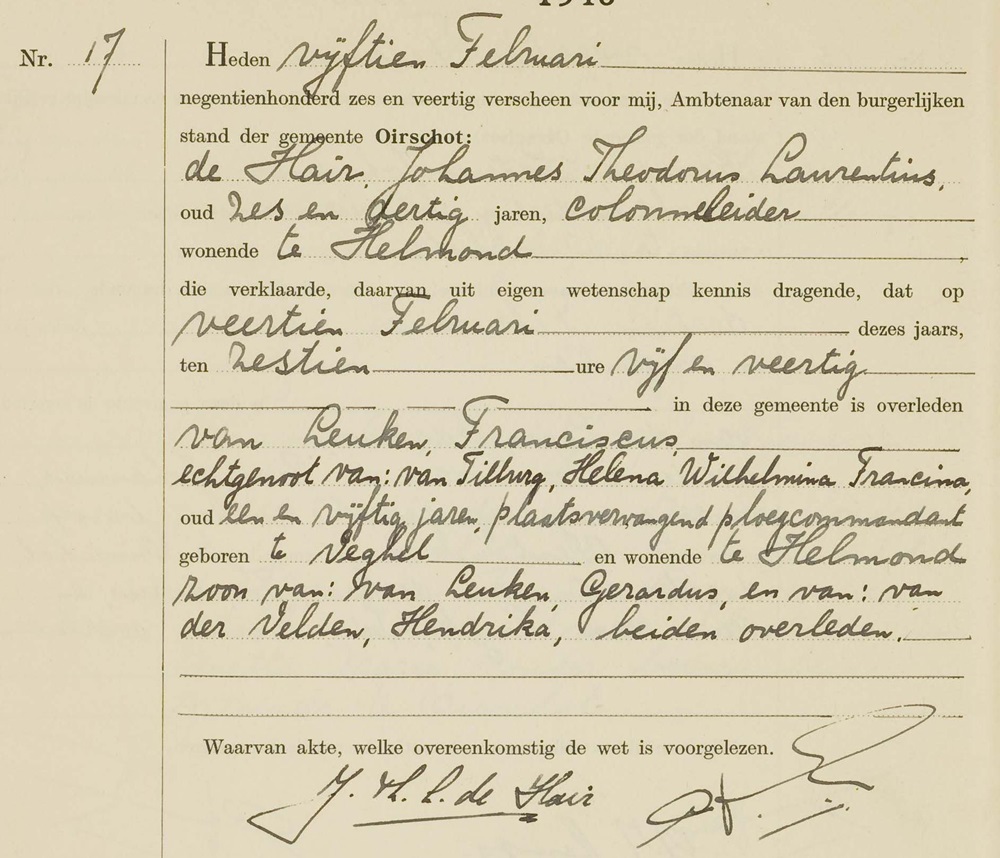 Nr. 17
Heden vijftien Februari
negentienhonderd zes en veertig verscheen voor mij, Ambtenaar van den burgerlijken
stand der gemeente Oirschot:
de Hair, Johannes Theodorus Laurentius,
oud zes en dertig jaren, colonneleider
wonende te Helmond,
die verklaarde, daarvan uit eigen wetenschap kennis dragende, dat op
veertien Februari dezes jaars,
ten zestien ure vijf en veertig
in deze gemeente is overleden
van Leuken, Franciscus,
echtgenoot van: van Tilburg, Helena Wilhelmina Francina,
oud een en vijftig jaren, plaatsvervangend ploegcommandant
geboren te Veghel en wonende te Helmond
zoon van: van Leuken, Gerardus, en van: van
der Velden, Hendrika, beiden overleden.
Waarvan akte, welke overeenkomstig de wet is voorgelezen.
J. Th. L. de Hair